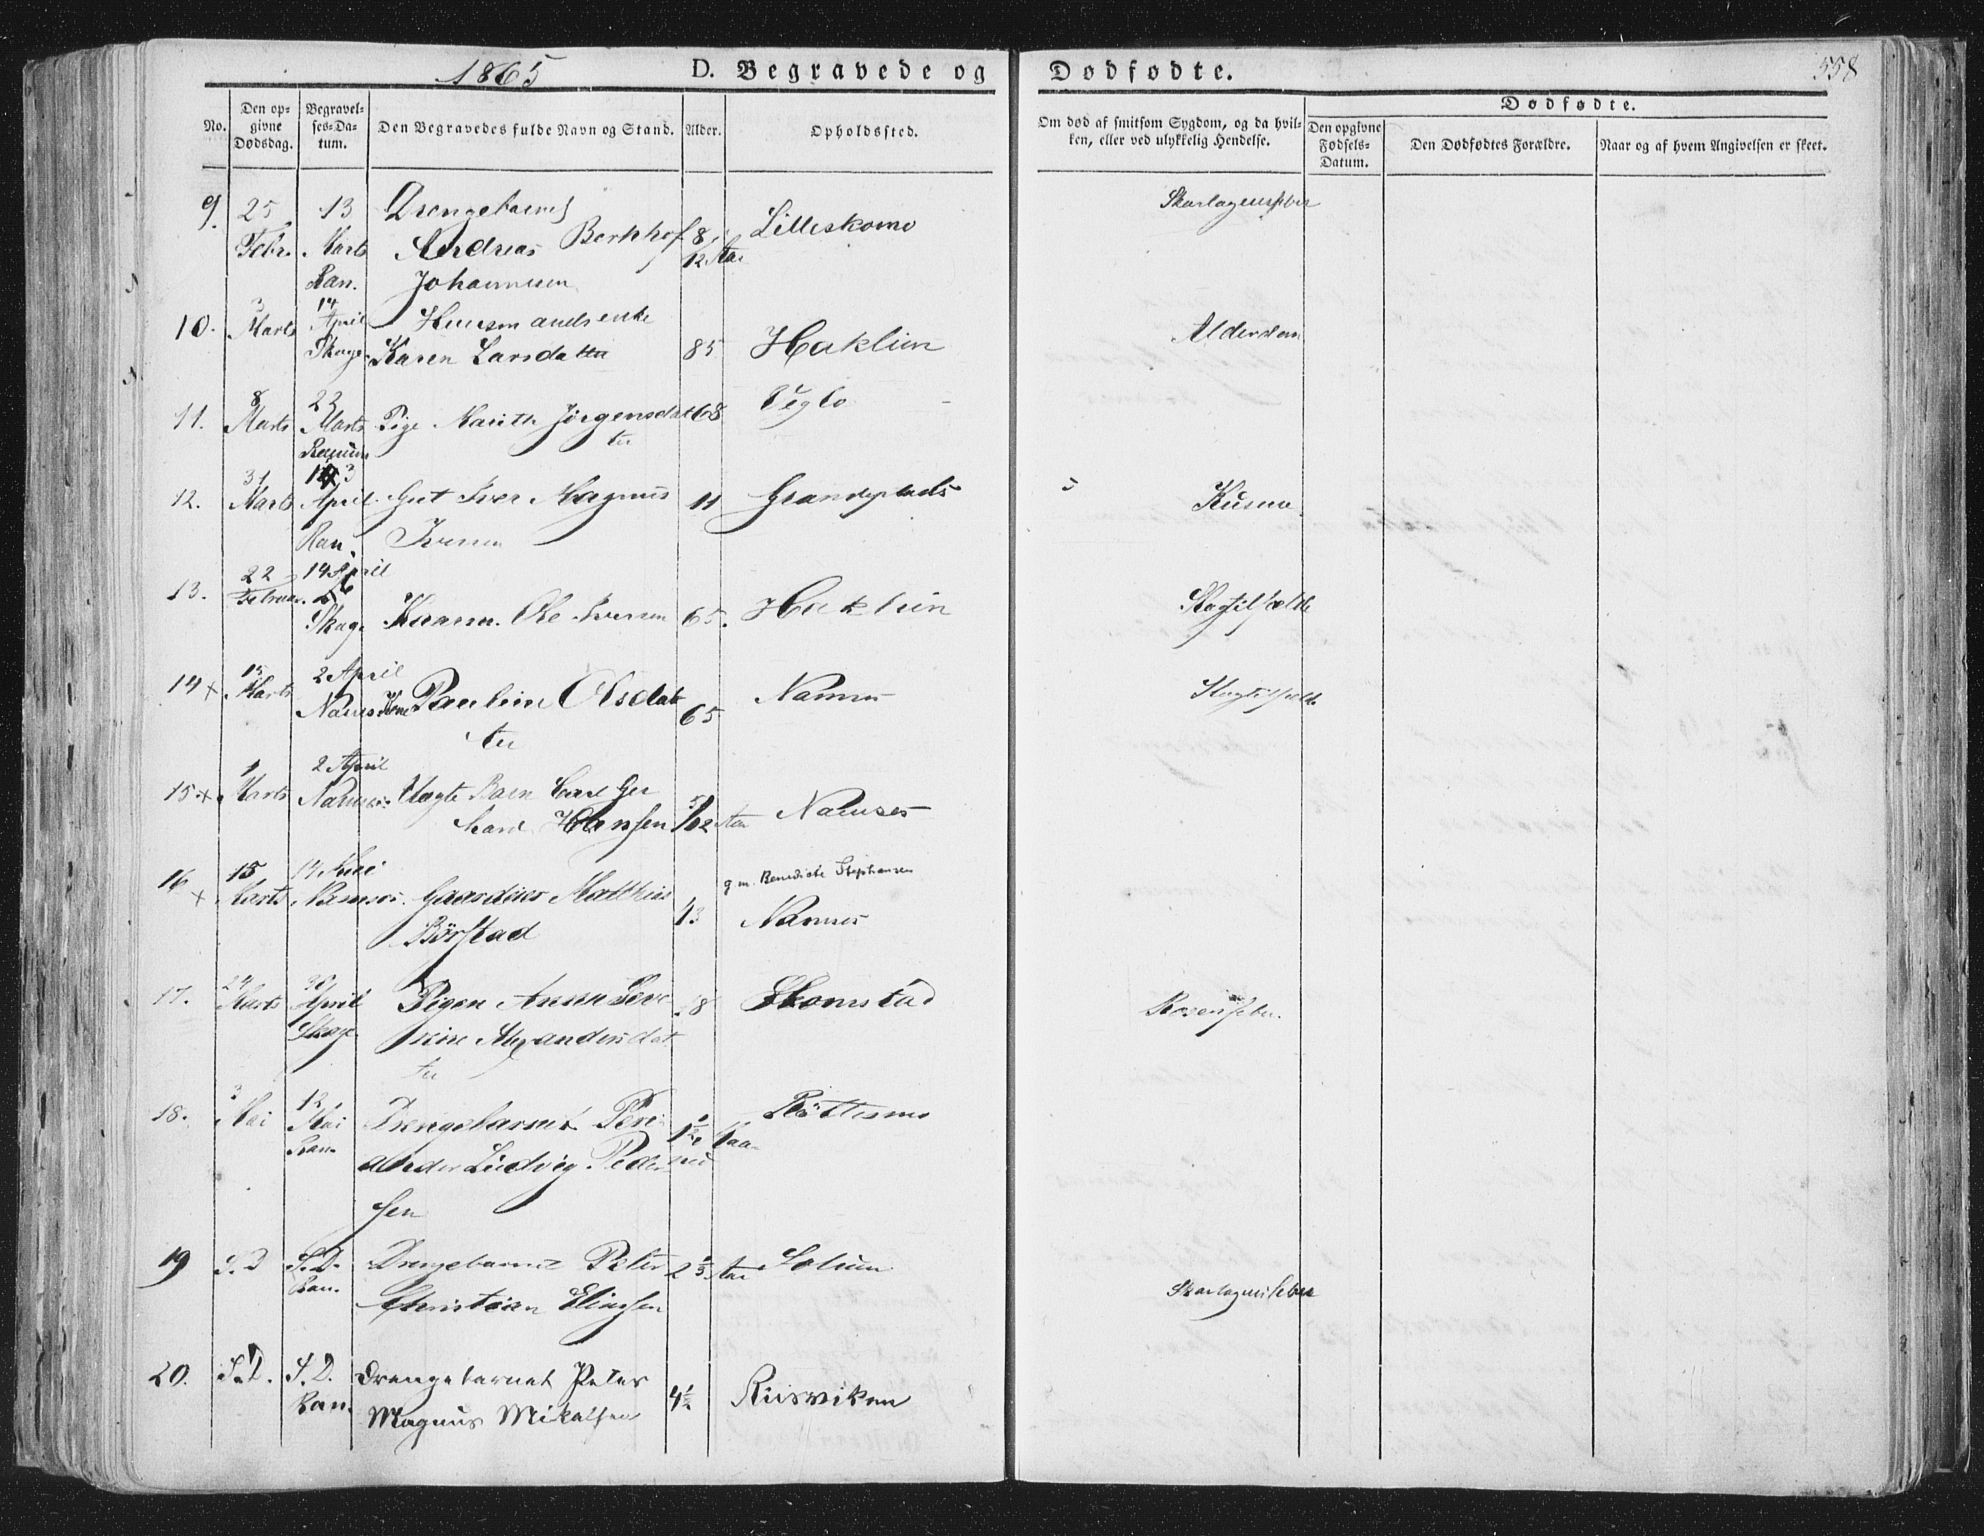 1865 D. Begravede og Dødfødte. 558
No. Den opgivne Dødsdag. Begravelses-Datum. Den Begravedes fulde Navn og Stand. Alder. Opholdssted. Om død af smitsom Sygdom, og da hvilken, eller ved ulykkelig Hendelse. Dødfødte. Den opgivne Fødsels-Datum. Den Dødfødtes Forældre. Naar og af hvem Angivelsen er skeet.
9. 25 13 Drengebarnet Skarlagensfeber
Febr. Marts Andreas Berkhof 8/12 Aar Lilleskomo
Ran. Johannesen
3 14
10. Marts April Huusmandsenke Alderdom
Skage Karen Larsdatter 85 Haklien
8 23 Uglo
11. Marts Marts Pige Marith Jørgensdat 68
Ranum ter
31 13
12. Marts April Gut Iver Magnus 11 Grandeplads
Ran. Iversen
22 14 April
13. Februar
Skage Ole Iversen 65. Haklien Slagtilfælde
15 2 April
14 + Marts Nams Kone Pauline Olsdat 65 Namsos Slagtilfælde
ter
1 2 April
15 + Marts Namsos Uægte Barn Carl Ger
hard Hansen 5/12 Aar Namsos
15 14 g m. Benedicte Stephansen
16 + Marts Namsos. Gaardeier Matthias
Børstad 43 Namsos
24 30
17. Marts April Pigen Anne Seve 18 Skomstad Rosenfeber.
Skage rine Alexandersdat
ter
3 12
18. Mai Mai Drengebarnet Peri 1½ Aar
Ran. ander Ludvig Peder
sen
19 S. D S. D. Drengebarnet Peter 2 Aar Solum
Ran. Christian Eliassen Skarlagensfeber
20. S. D. S. D. Drengebarnet Peter
Ran. Magnus Mikalsen 4½ Riisviken